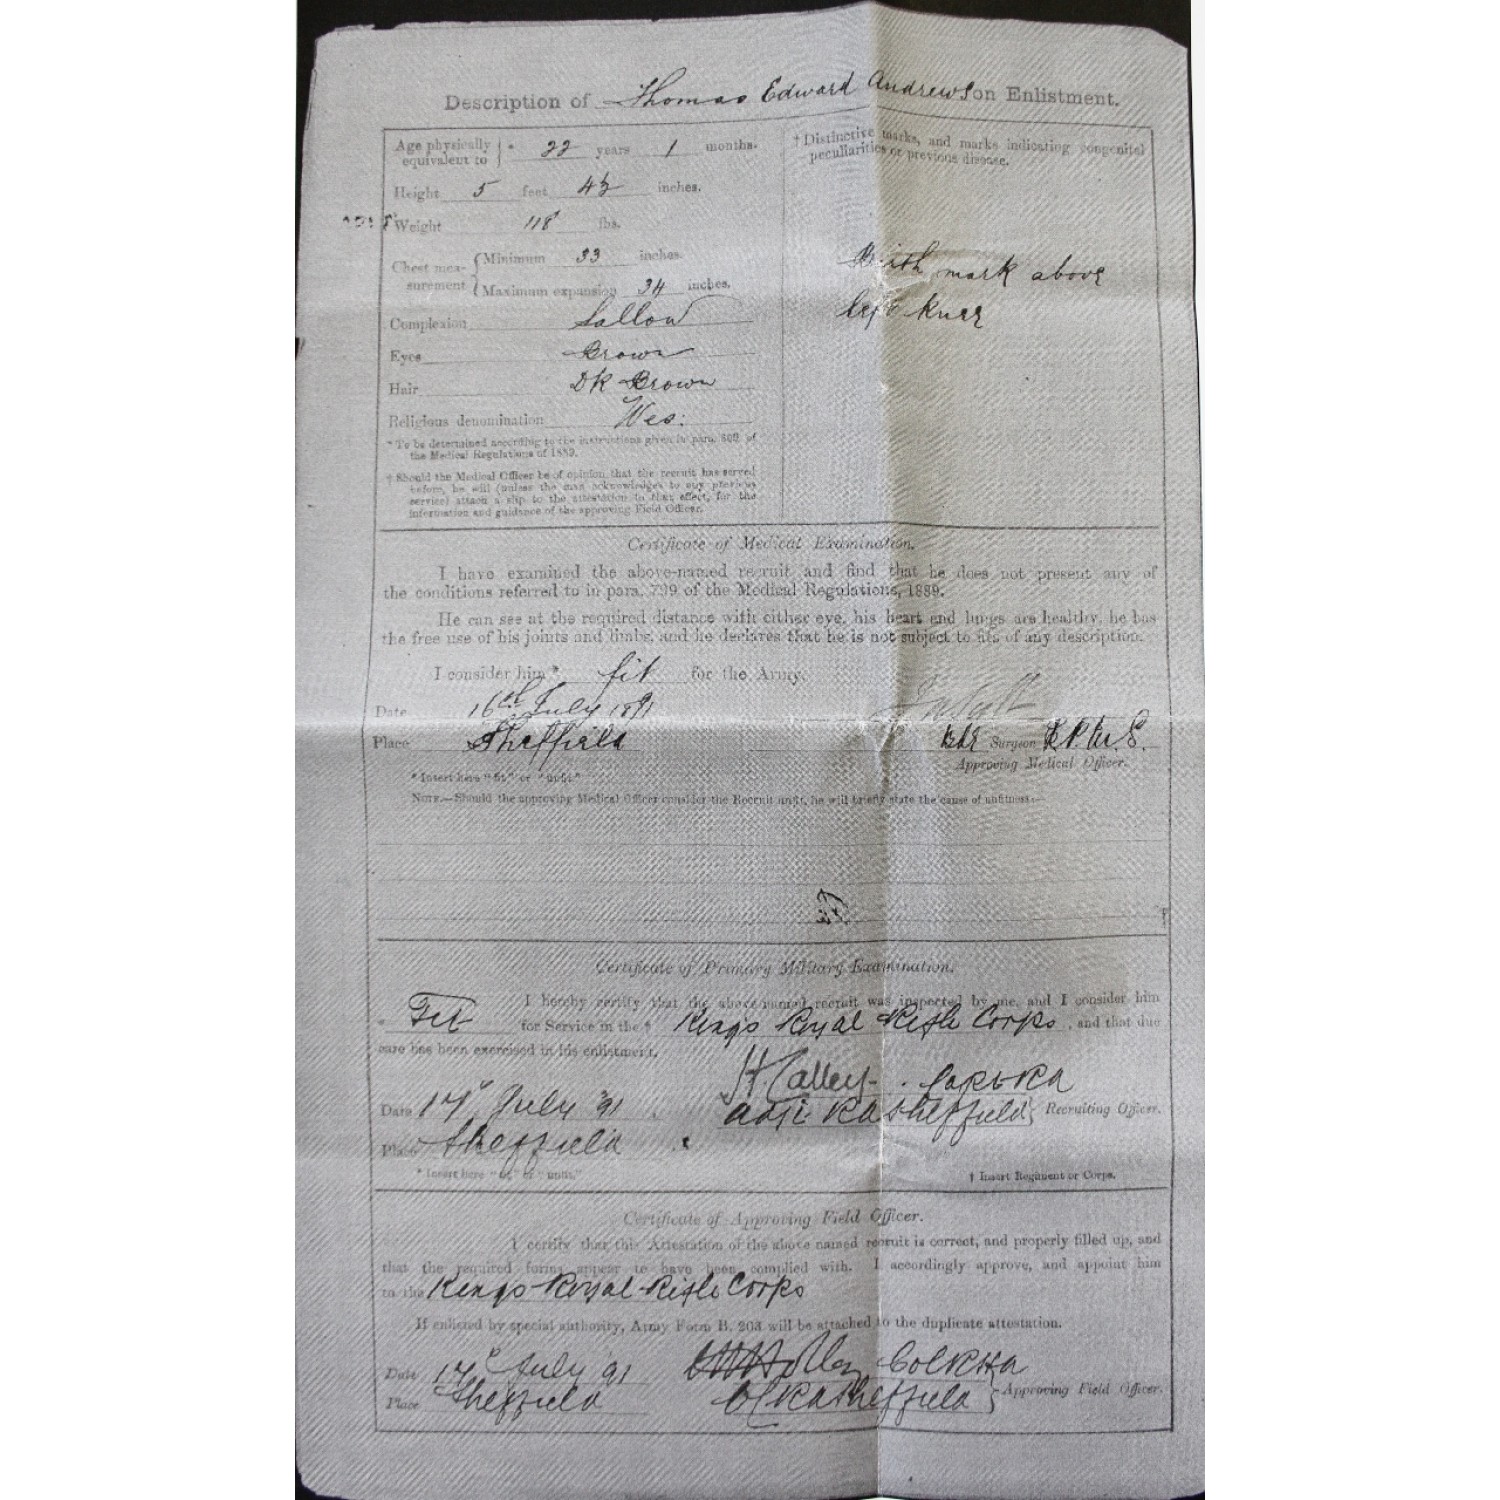 Description of Thomas Edward Andrews on Enlistment.
Age physically equivalent to } * 22 years 1 months.
Height 5 feet 4½ inches.
Weight 118 lbs.
Chest mea-surement { Minimum 33 inches.
Maximum expansion 34 inches.
Complexion Sallow
Eyes Brown
Hair Dk Brown
Religious denomination Wes:
* To be determined according to the instructions given in para. of
the Medical Regulations of 1889.
† Should the Medical Officer be of opinion that the recruit has served
before, he will (unless the man acknowledges to any previous
service) attach a slip to the attestation to that effect, for the
information and guidance of the approving Field Officer.
† Distinctive marks, and marks indicating congenital
peculiarities or previous disease.
Birth mark above
left knee
Certificate of Medical Examination.
I have examined the above-named recruit and find that he does not present any of
the conditions referred to in para. 799 of the Medical Regulations, 1889.
He can see at the required distance with either eye, his heart and lungs are healthy, he has
the free use of his joints and limbs, and he declares that he is not subject to fits of any description.
I consider him * fit for the Army.
Date 16th July 1891
Place Sheffield
Surgeon
Approving Medical Officer.
* Insert here "fit" or "unfit"
NOTE.—Should the approving Medical Officer consider the Recruit unfit, he will briefly state the cause of unfitness:—
Certificate of Primary Military Examination.
I hereby certify that the above-named recruit was inspected by me, and I consider him
* Fit for Service in the † Kings Royal Rifle Corps, and that due
care has been exercised in his enlistment.
Date 17th July '91
Place Sheffield
Sheffield } Recruiting Officer.
* Insert here "fit" or "unfit."
† Insert Regiment or Corps.
Certificate of Approving Field Officer.
I certify that this Attestation of the above named recruit is correct, and properly filled up, and
that the required forms appear to have been complied with. I accordingly approve, and appoint him
to the Kings Royal Rifle Corps
If enlisted by special authority, Army Form B. 203 will be attached to the duplicate attestation.
Date 17th July '91
Place Sheffield
Sheffield } Approving Field Officer.